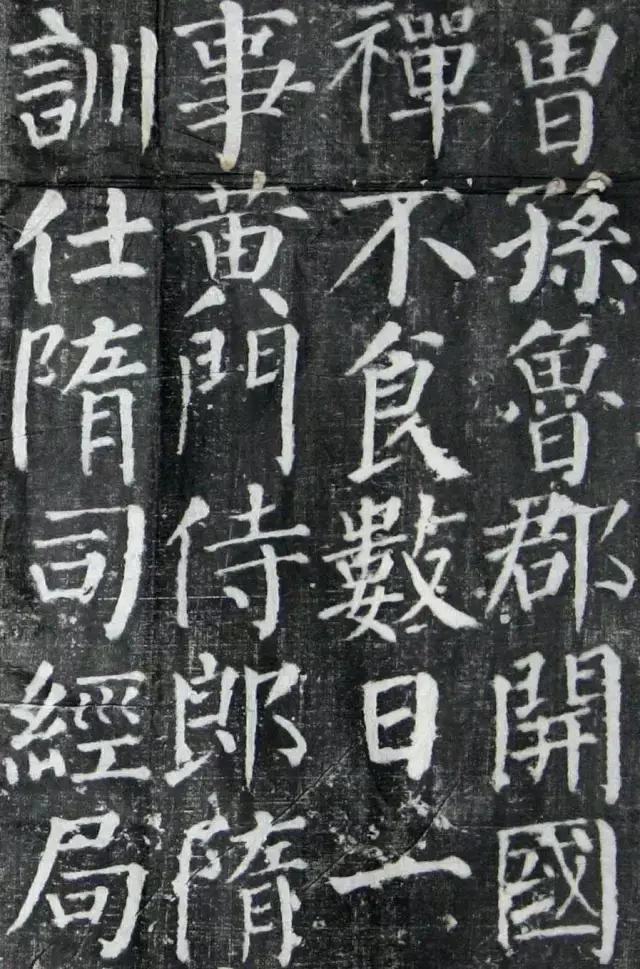 曾孫魯郡開國
禪不食數日一
事黄門侍郎隋
訓仕隋司經局